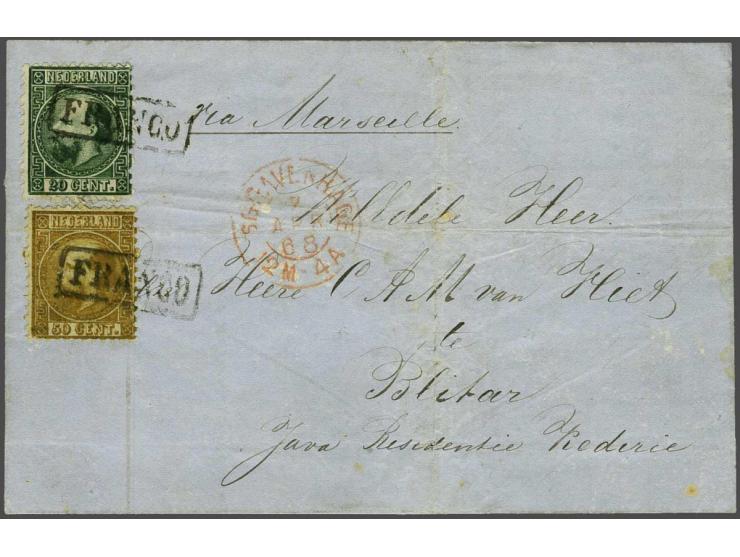 NEDERLAND
FRANCO
20 CENT.
NEDERLAND
FRANCO
50 CENT.
via Marseille.
'S GRAVENHAGE
7
APR
68
12M-4A
Heer
Heere C A M van Hiet
te
Blitar
Java Residentie Kederie